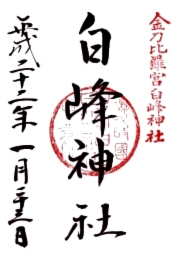 金刀比羅宮白峰神社
白峰神社
平成二十二年一月二十三日